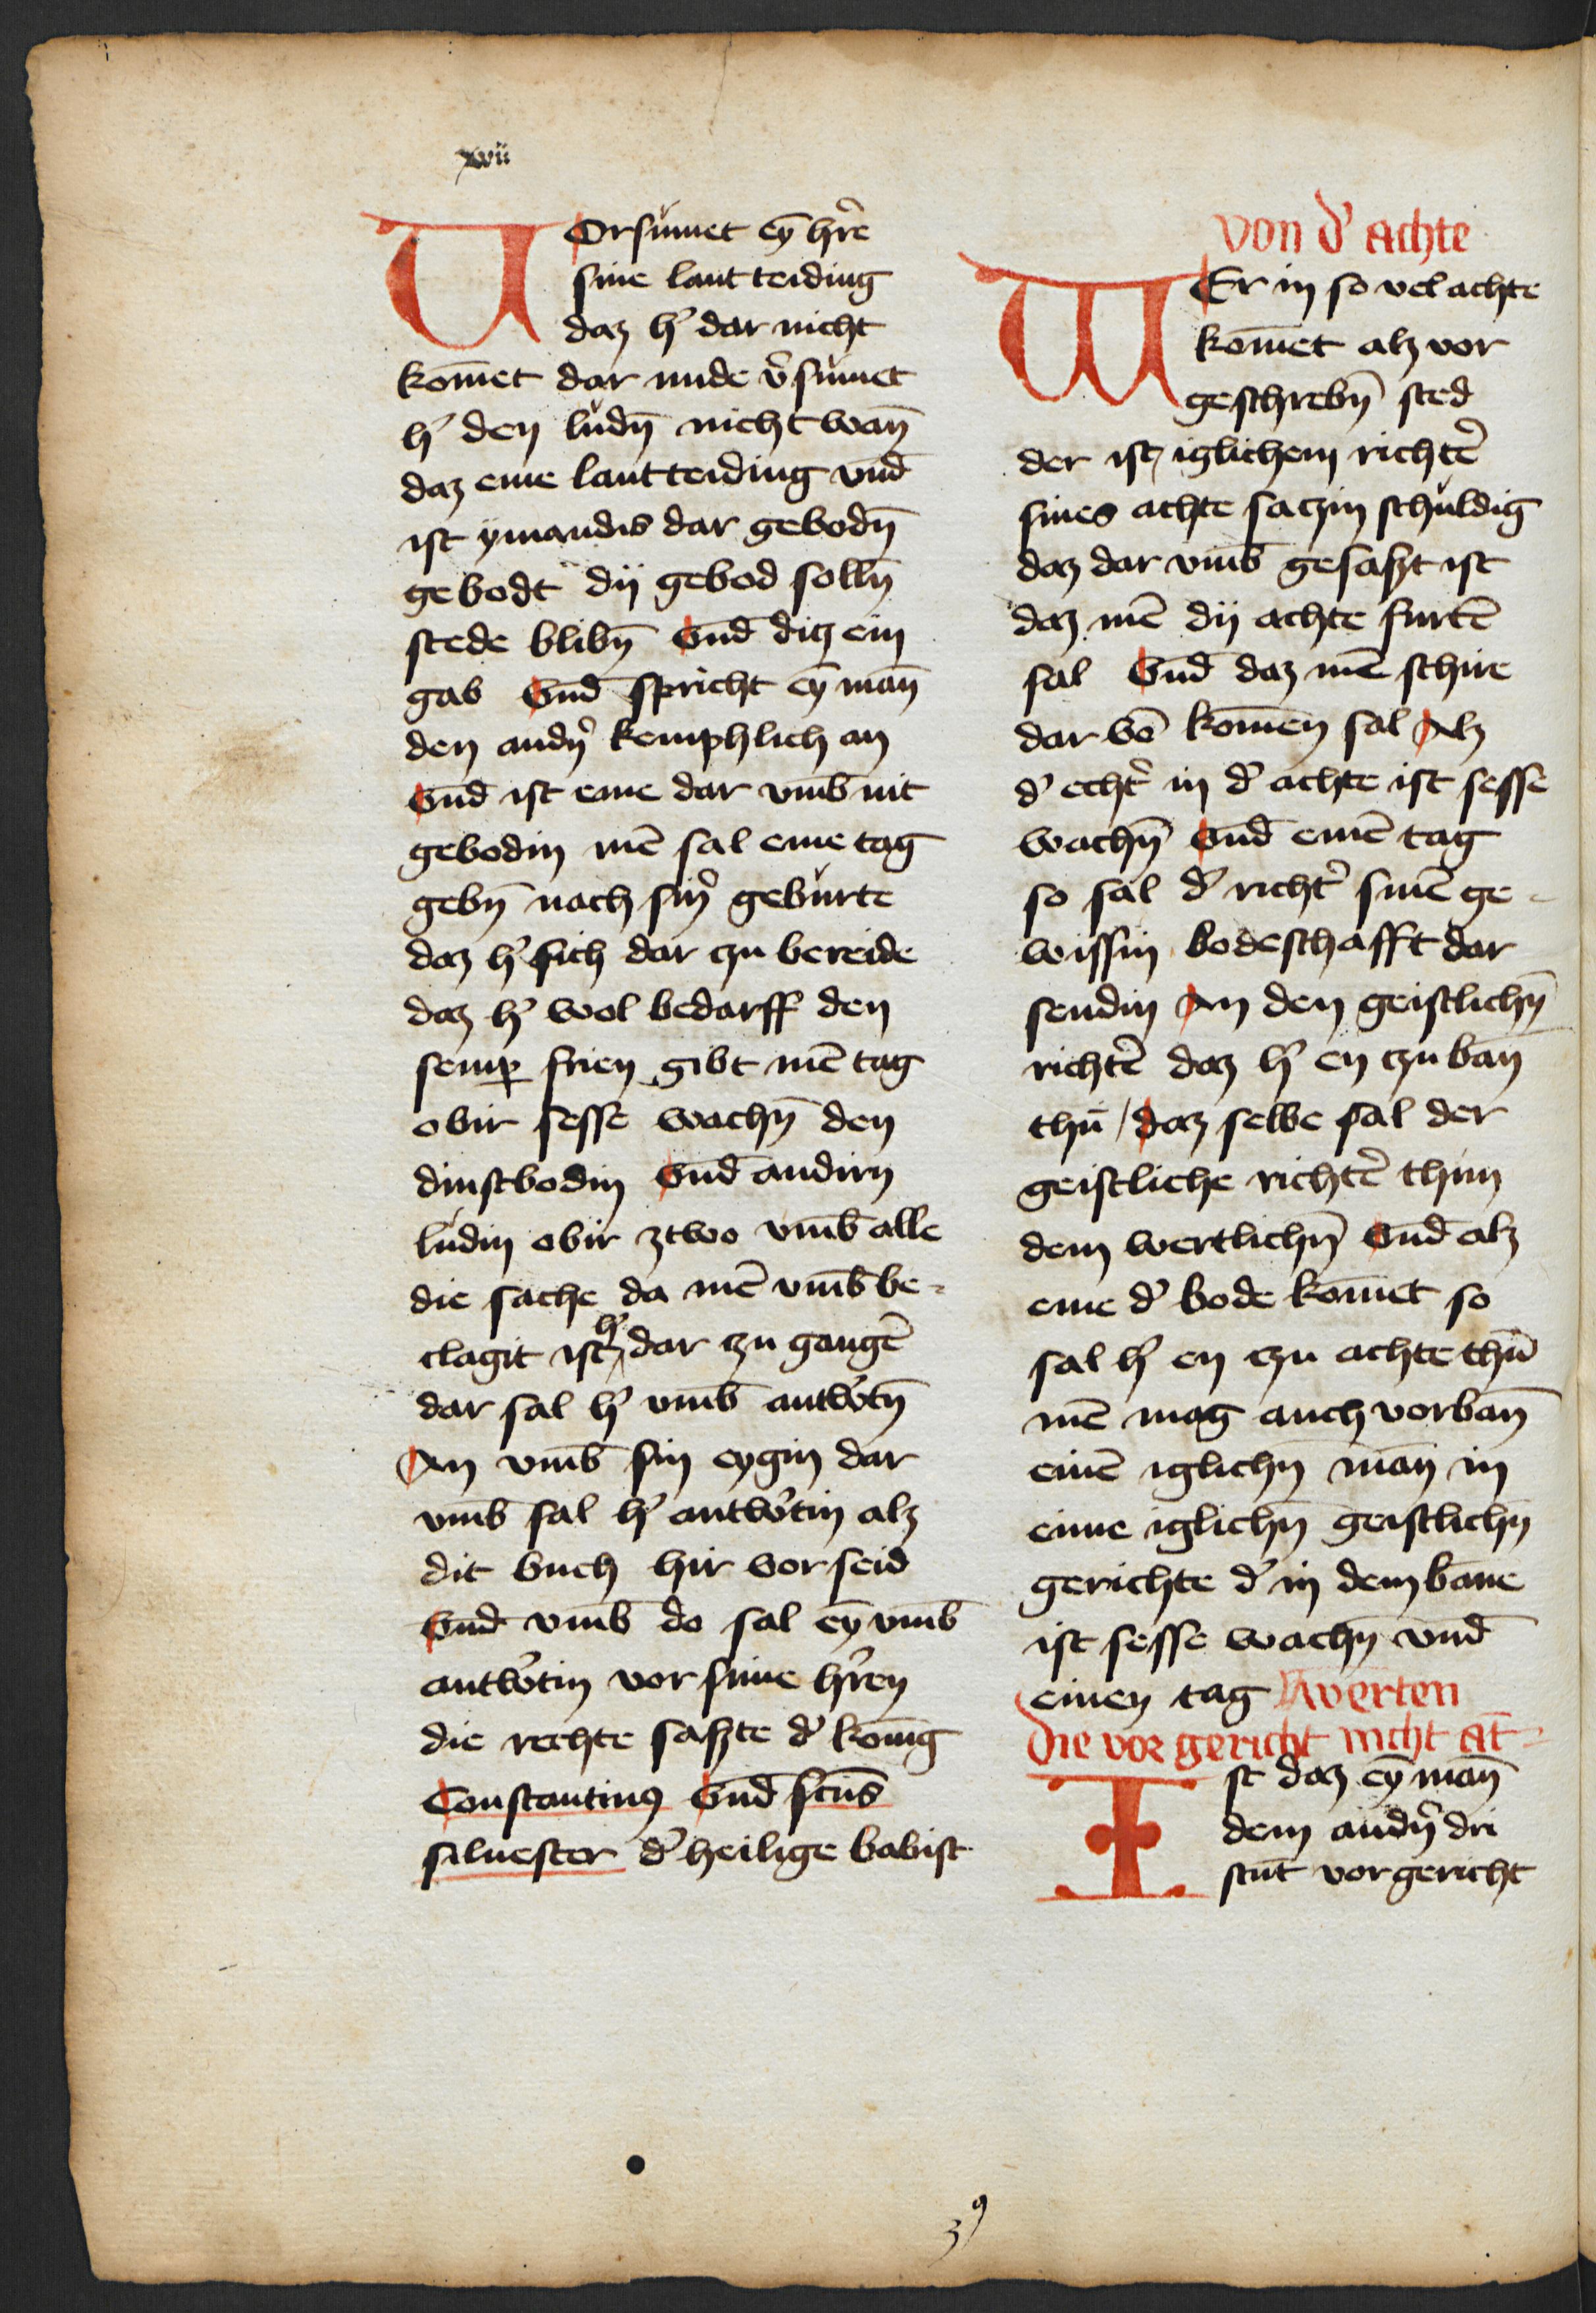 xvii
VOrsůmet ey̅ hr̕e
sine lant teiding
daz h̕ dar nicht
kom̅et dar mide v̕sůmet
h̕ den lůdn̅ nicht wan̅
daz eine lant teiding vnd̅
ist ymandis dar gebodn̅
gebodt dij gebod solln̅
stede blibn̅ Vnd̅ diz ein
gab Vnd̅ spricht ey̅ man̅
den andn̕ kemphlich an
Vnd̅ ist eme dar vm̅b nit
gebodin me̅ sal eme tag
gebn̅ nach sin̕ gebůrte
daz h̕ sich dar zu bereide
daz h̕ wol bedarff den
semꝑ frien gibt me̅ tag
obir sesse wachn̅ den
dinstbodin Vnd̅ andirn
lůdin obir ztwo vm̅b alle
die sache da me̅ vm̅b be-
clagit ist h̕ dar zu gange̅
dar sal h̕ vm̅b antw̕tn̅
An vm̅b sin eygin dar
vm̅b sal h̕ antw̕tin alz
dit buch hir vor seid
Vnd̅ vm̅b do sal ey̅ vm̅b
antw̕tin vor sime hr̕en
die rechte saszte d̕ konig
Constantinꝰ Vnd̅ sctu̅s
siluester d̕ heilige babist
von d̕ achte
WEr in so vel achte
kom̅et alz vor
geschrebn̅ sted
der ist iglichem richte̕
sines achte saczin schůldig
daz dar vm̅b gesaszt ist
daz me̅ dij achte furte̅
sal Vnd̅ daz me̅ schire
dar vo̅ kom̅en sal Alz
d̕ echt̕ in d̕ achte ist sesse
wachn̅ Vnd̅ eine̅ tag
so sal d̕ richt̕ sine̅ ge-
wissin bodeschafft dar
sendin An den geistlichn̅
richte̅ daz h̕ en zu ban̅
thu̅ / daz selbe sal der
geistliche richte̕ thun
dem wertlichn̅ Vnd̅ alz
eme d̕ bode kom̅et so
sal h̕ en zu achte thu̅
me̅ mag auch vorban̅
eine̅ iglichn̅ man̅ in
eime iglichn̅ geistlichn̅
gerichte d̕ in dem ban̅e
ist sesse wachn̅ vnd̅
einen tag Awerten
Die vor gericht nicht At-
Ist daz ey̅ man̅
dem andn̕ dri
stu̅t vor gericht
39